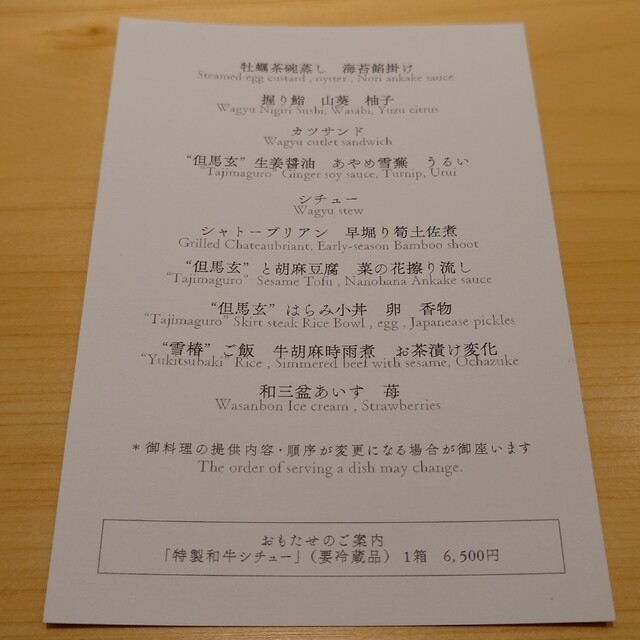 牡蠣茶碗蒸し 海苔餡掛け
Steamed egg custard , oyster , Nori ankake sauce
握り鮨 山葵 柚子
Wagyu Nigiri Sushi, Wasabi, Yuzu citrus
カツサンド
Wagyu cutlet sandwich
“但馬玄” 生姜醤油 あやめ雪蕪 うるい
“Tajimaguro” Ginger soy sauce, Turnip, Urui
シチュー
Wagyu stew
シャトーブリアン 早堀り筍土佐煮
Grilled Chateaubriant, Early-season Bamboo shoot
“但馬玄” と胡麻豆腐 菜の花擦り流し
“Tajimaguro” Sesame Tofu , Nanohana Ankake sauce
“但馬玄” はらみ小丼 卵 香物
“Tajimaguro” Skirt steak Rice Bowl , egg , Japanease pickles
“雪椿” ご飯 牛胡麻時雨煮 お茶漬け変化
“Yukitsubaki” Rice , Simmered beef with sesame, Ochazuke
和三盆あいす 苺
Wasanbon Ice cream , Strawberries
＊御料理の提供内容・順序が変更になる場合が御座います
The order of serving a dish may change.
おもたせのご案内
「特製和牛シチュー」（要冷蔵品） 1箱 6,500円